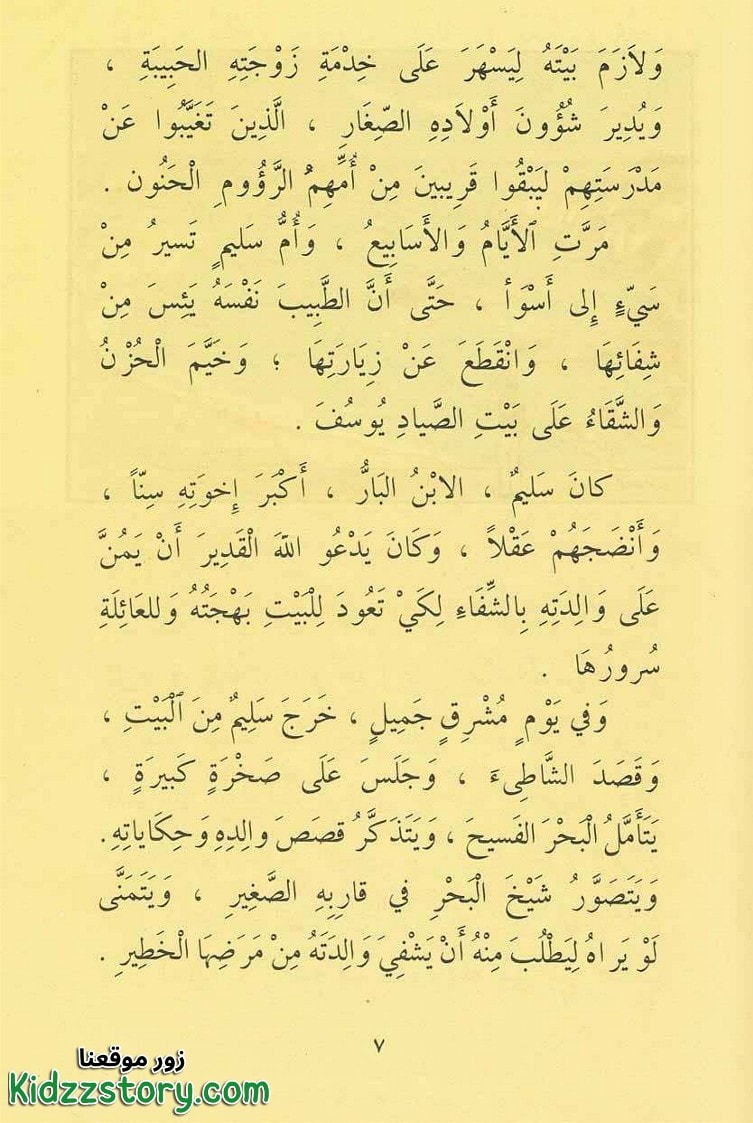 وَلاَزَمَ بَيْتَهُ لِيَسْهَرَ عَلَى خِدْمَةِ زَوْجَتِهِ الحَبِيبَةِ ،
وَيُدِيرَ شُؤُونَ أَوْلاَدِهِ الصِّغَارِ ، الَّذِينَ تَغَيَّبُوا عَنْ
مَدْرَسَتِهِمْ لِيَبْقُوا قَرِيبينَ مِنْ أُمِّهِمُ الرَّؤُومِ الْحَنُون .
مَرَّتِ ٱلأَيَّامُ وَالأَسَابِيعُ ، وَأُمُّ سَليمٍ تَسيرُ مِنْ
سَيِّءٍ إِلى أَسْوَأ ، حَتَّى أَنَّ الطَّبِيبَ نَفْسَهُ يَئِسَ مِنْ
شِفَائِهَا ، وَانْقَطَعَ عَنْ زِيَارَتِهَا ؛ وَخَيَّمَ الْحُزْنُ
وَالشَّقَاءُ عَلَى بَيْتِ الصَّيادِ يُوسُفَ .
كانَ سَليمٌ ، الابْنُ البَارُّ ، أَكْبَرَ إِخوَتِهِ سِنّاً ،
وَأَنْضَجَهُمْ عَقْلاً ، وَكَانَ يَدْعُو اللّهَ الْقَديرَ أَنْ يَمُنَّ
عَلَى وَالِدَتِهِ بِالشِّفَاءِ لِكَيْ تَعُودَ لِلْبَيْتِ بَهْجَتُهُ وَللعَائِلَةِ
سُرورُهَا .
وَفي يَوْمٍ مُشْرِقٍ جَمِيلٍ ، خَرَجَ سَلِيمٌ مِنَ ٱلْبَيْتِ ،
وَقَصَدَ الشَّاطِىءَ ، وَجَلَسَ عَلَى صَخْرَةٍ كَبِيرَةٍ ،
يَتَأَمَّلُ الْبَحْرَ الفَسيحَ ، وَيَتَذَكَّرُ قصَصَ والِدِهِ وَحِكَاياتِهِ.
وَيَتَصَوَّرُ شَيْخَ الْبَحْرِ في قارِبِهِ الصَّغِيرِ ، وَيَتَمَنَّى
لَوْ يَراهُ لِيَطْلُبَ مِنْهُ أَنْ يَشْفِيَ وَالِدَتَهُ مِنْ مَرَضِهَا الْخَطِيرِ .
٧
زور موقعنا
Kidzzstory.com